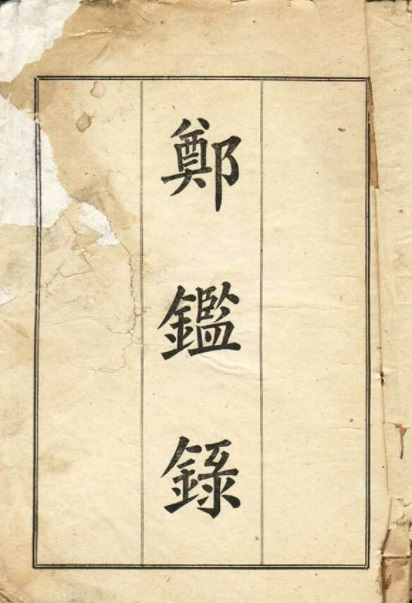 鄭鑑錄